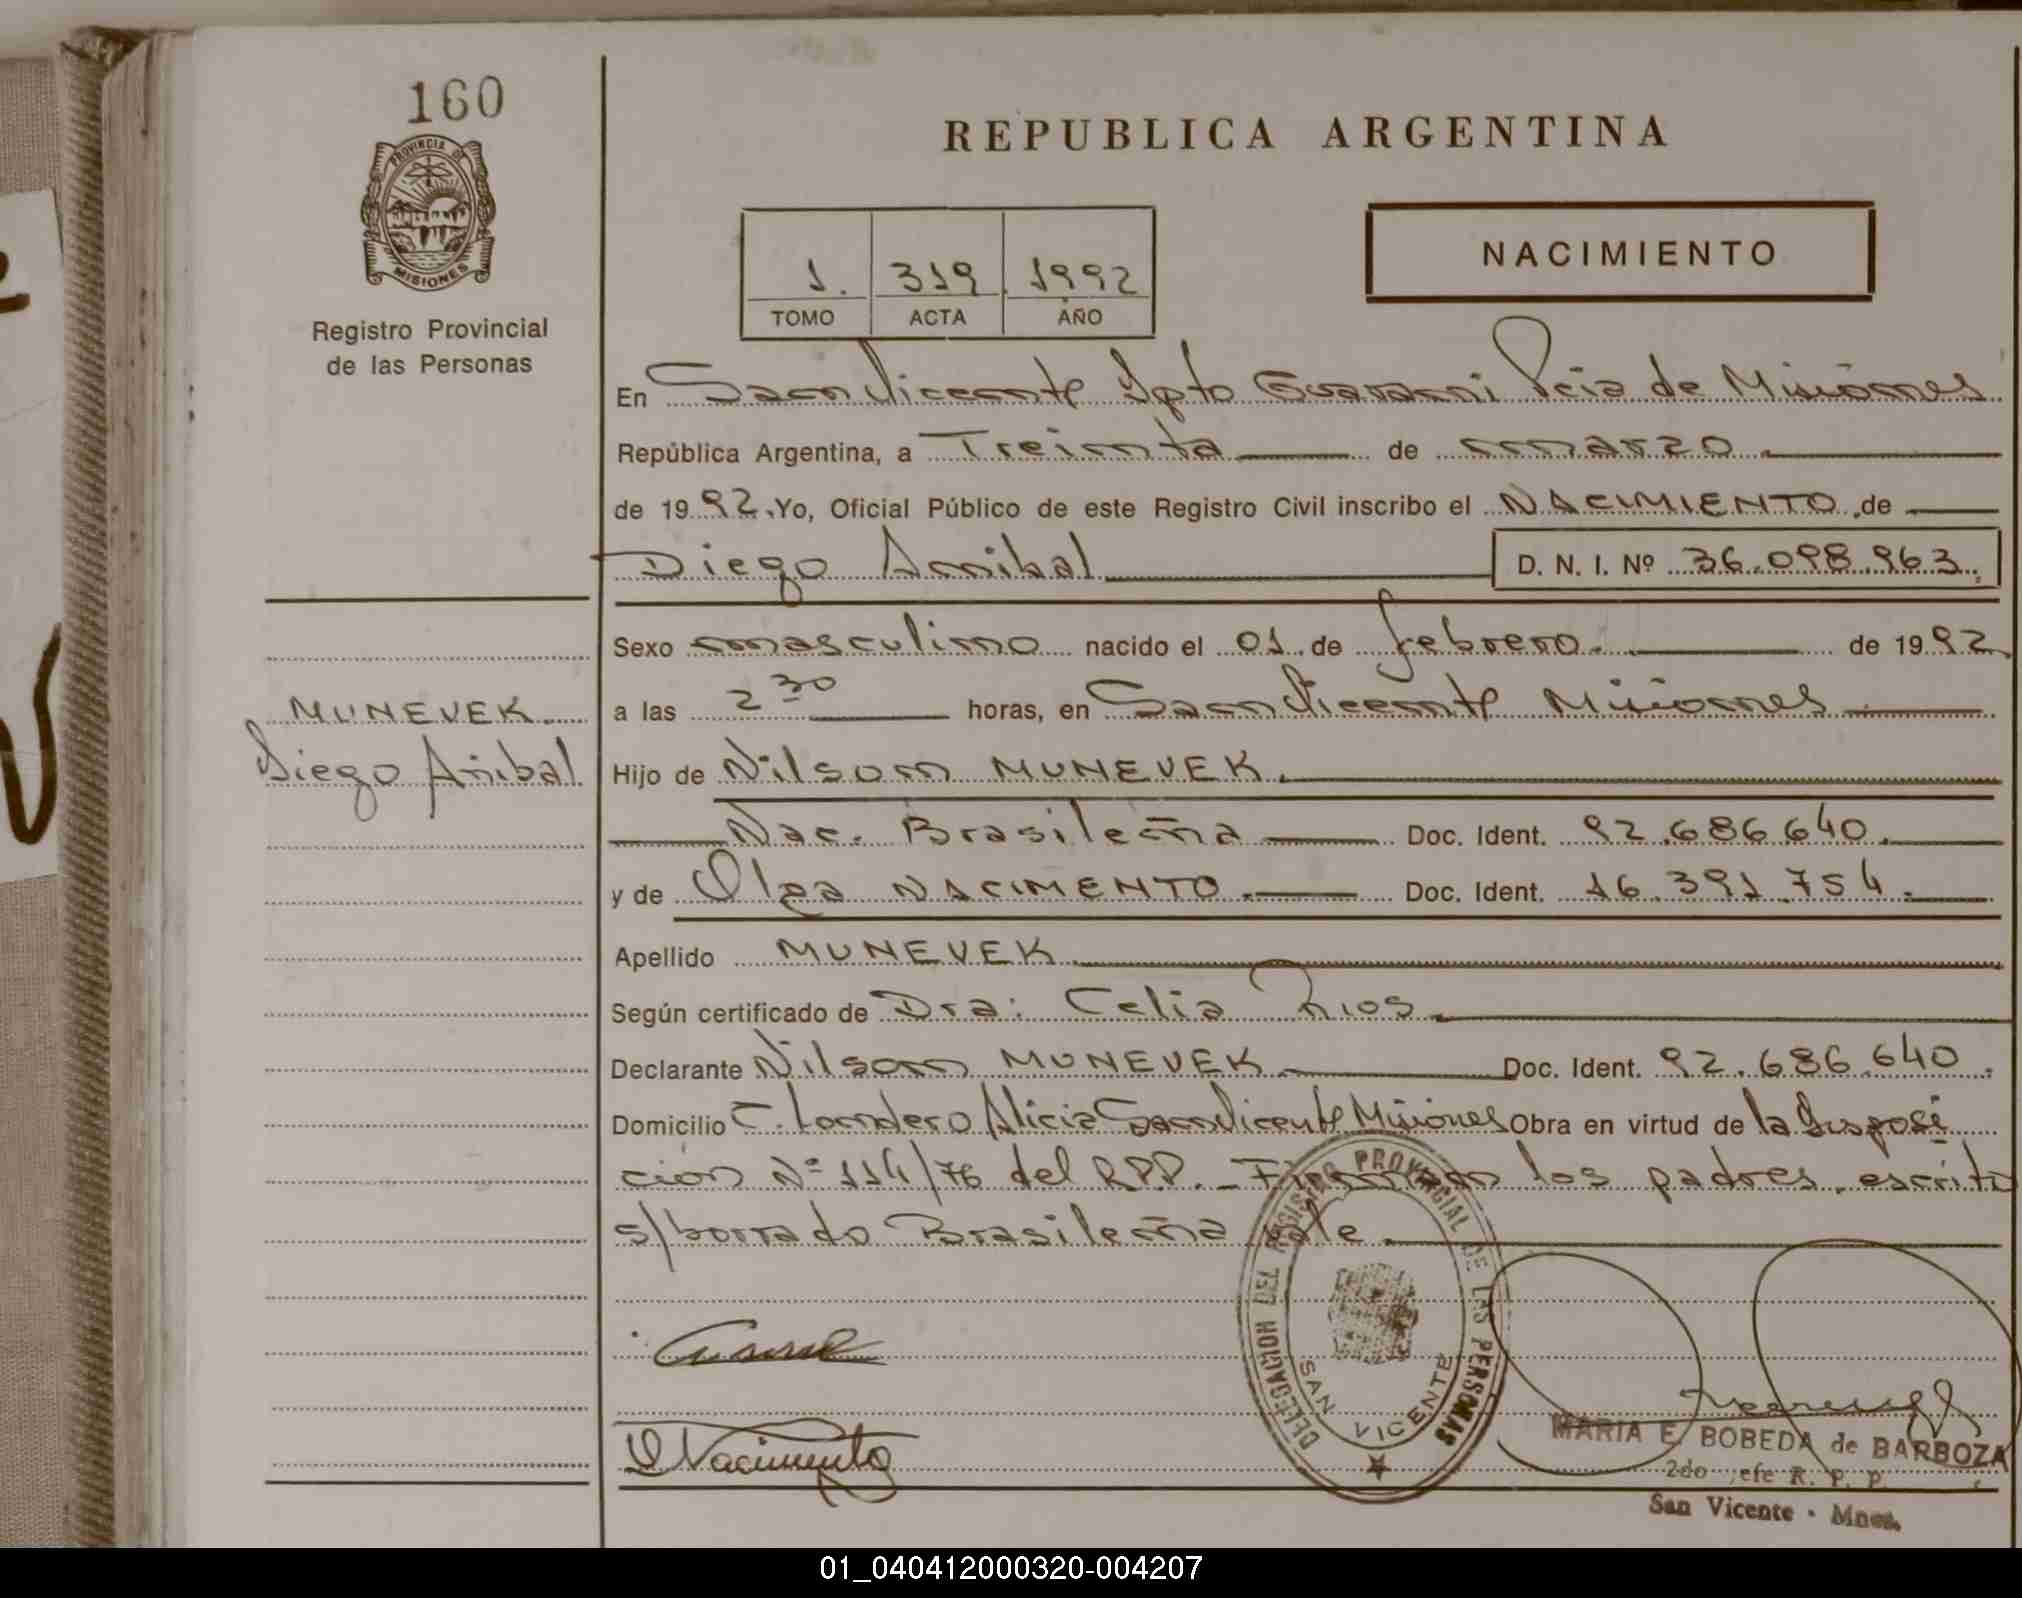 160
PROVINCIA DE
MISIONES
Registro Provincial
de las Personas
REPUBLICA ARGENTINA
NACIMIENTO
1. 319 1992
TOMO ACTA AÑO
En San Vicente Dpto Guarani Pcia de Misiones
República Argentina, a Treinta de marzo
de 1992. Yo, Oficial Público de este Registro Civil inscribo el NACIMIENTO de
Diego Annibal D. N. I. Nº 36.098.963.
Sexo masculino nacido el 01 de febrero. de 1992.
a las 2 30 horas, en San Vicente Misiones
MUNEVEK.
Diego Anibal
Hijo de Nilson MUNEVEK.
Nac. Brasileña Doc. Ident. 92.686.640.
y de Olga NACIMENTO. Doc. Ident. 16.391.754.
Apellido MUNEVEK
Según certificado de Dra: Celia Rios.
Declarante Nilson MUNEVEK Doc. Ident. 92.686.640.
Domicilio Alicia San Vicente Misiones Obra en virtud de la Disposi
ción Nº 114/76 del R.P.P. - Firman los padres, escrito
s/borrado Brasileña vale
DELEGACION DEL REGISTRO PROVINCIAL DE LAS PERSONAS
SAN VICENTE
O Nacimento
MARIA E. BOBEDA de BARBOZA
2do Jefe R. P. P.
San Vicente - Mnes.
01_040412000320-004207